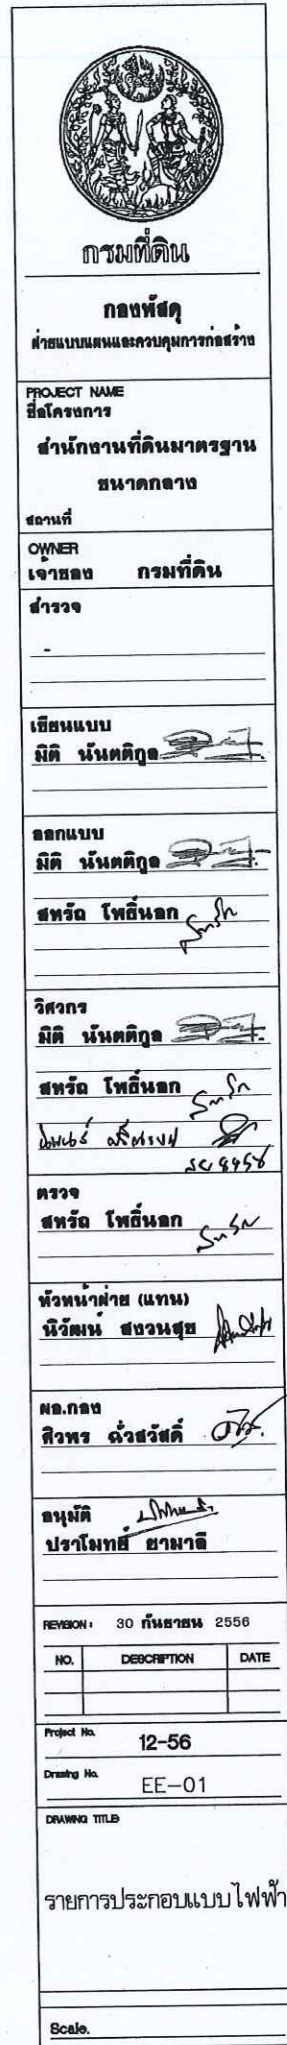 กรมที่ดิน
กองพัสดุ
ฝ่ายแบบแผนและควบคุมการก่อสร้าง
PROJECT NAME
ชื่อโครงการ
สำนักงานที่ดินมาตรฐาน
ขนาดกลาง
สถานที่
OWNER
เจ้าของ กรมที่ดิน
สำรวจ
-
เขียนแบบ
มิติ นันตติกูล
ออกแบบ
มิติ นันตติกูล
สหรัถ โพธิ์นอก
วิศวกร
มิติ นันตติกูล
สหรัถ โพธิ์นอก
ตรวจ
สหรัถ โพธิ์นอก
หัวหน้าฝ่าย (แทน)
นิวัฒน์ สงวนสุข
ผอ.กอง
ศิวพร ฉั่วสวัสดิ์
อนุมัติ
ปราโมทย์ ยามาลี
REVISION : 30 กันยายน 2556
NO. DESCRIPTION DATE
Project No. 12-56
Drawing No. EE-01
DRAWING TITLE
รายการประกอบแบบไฟฟ้า
Scale.